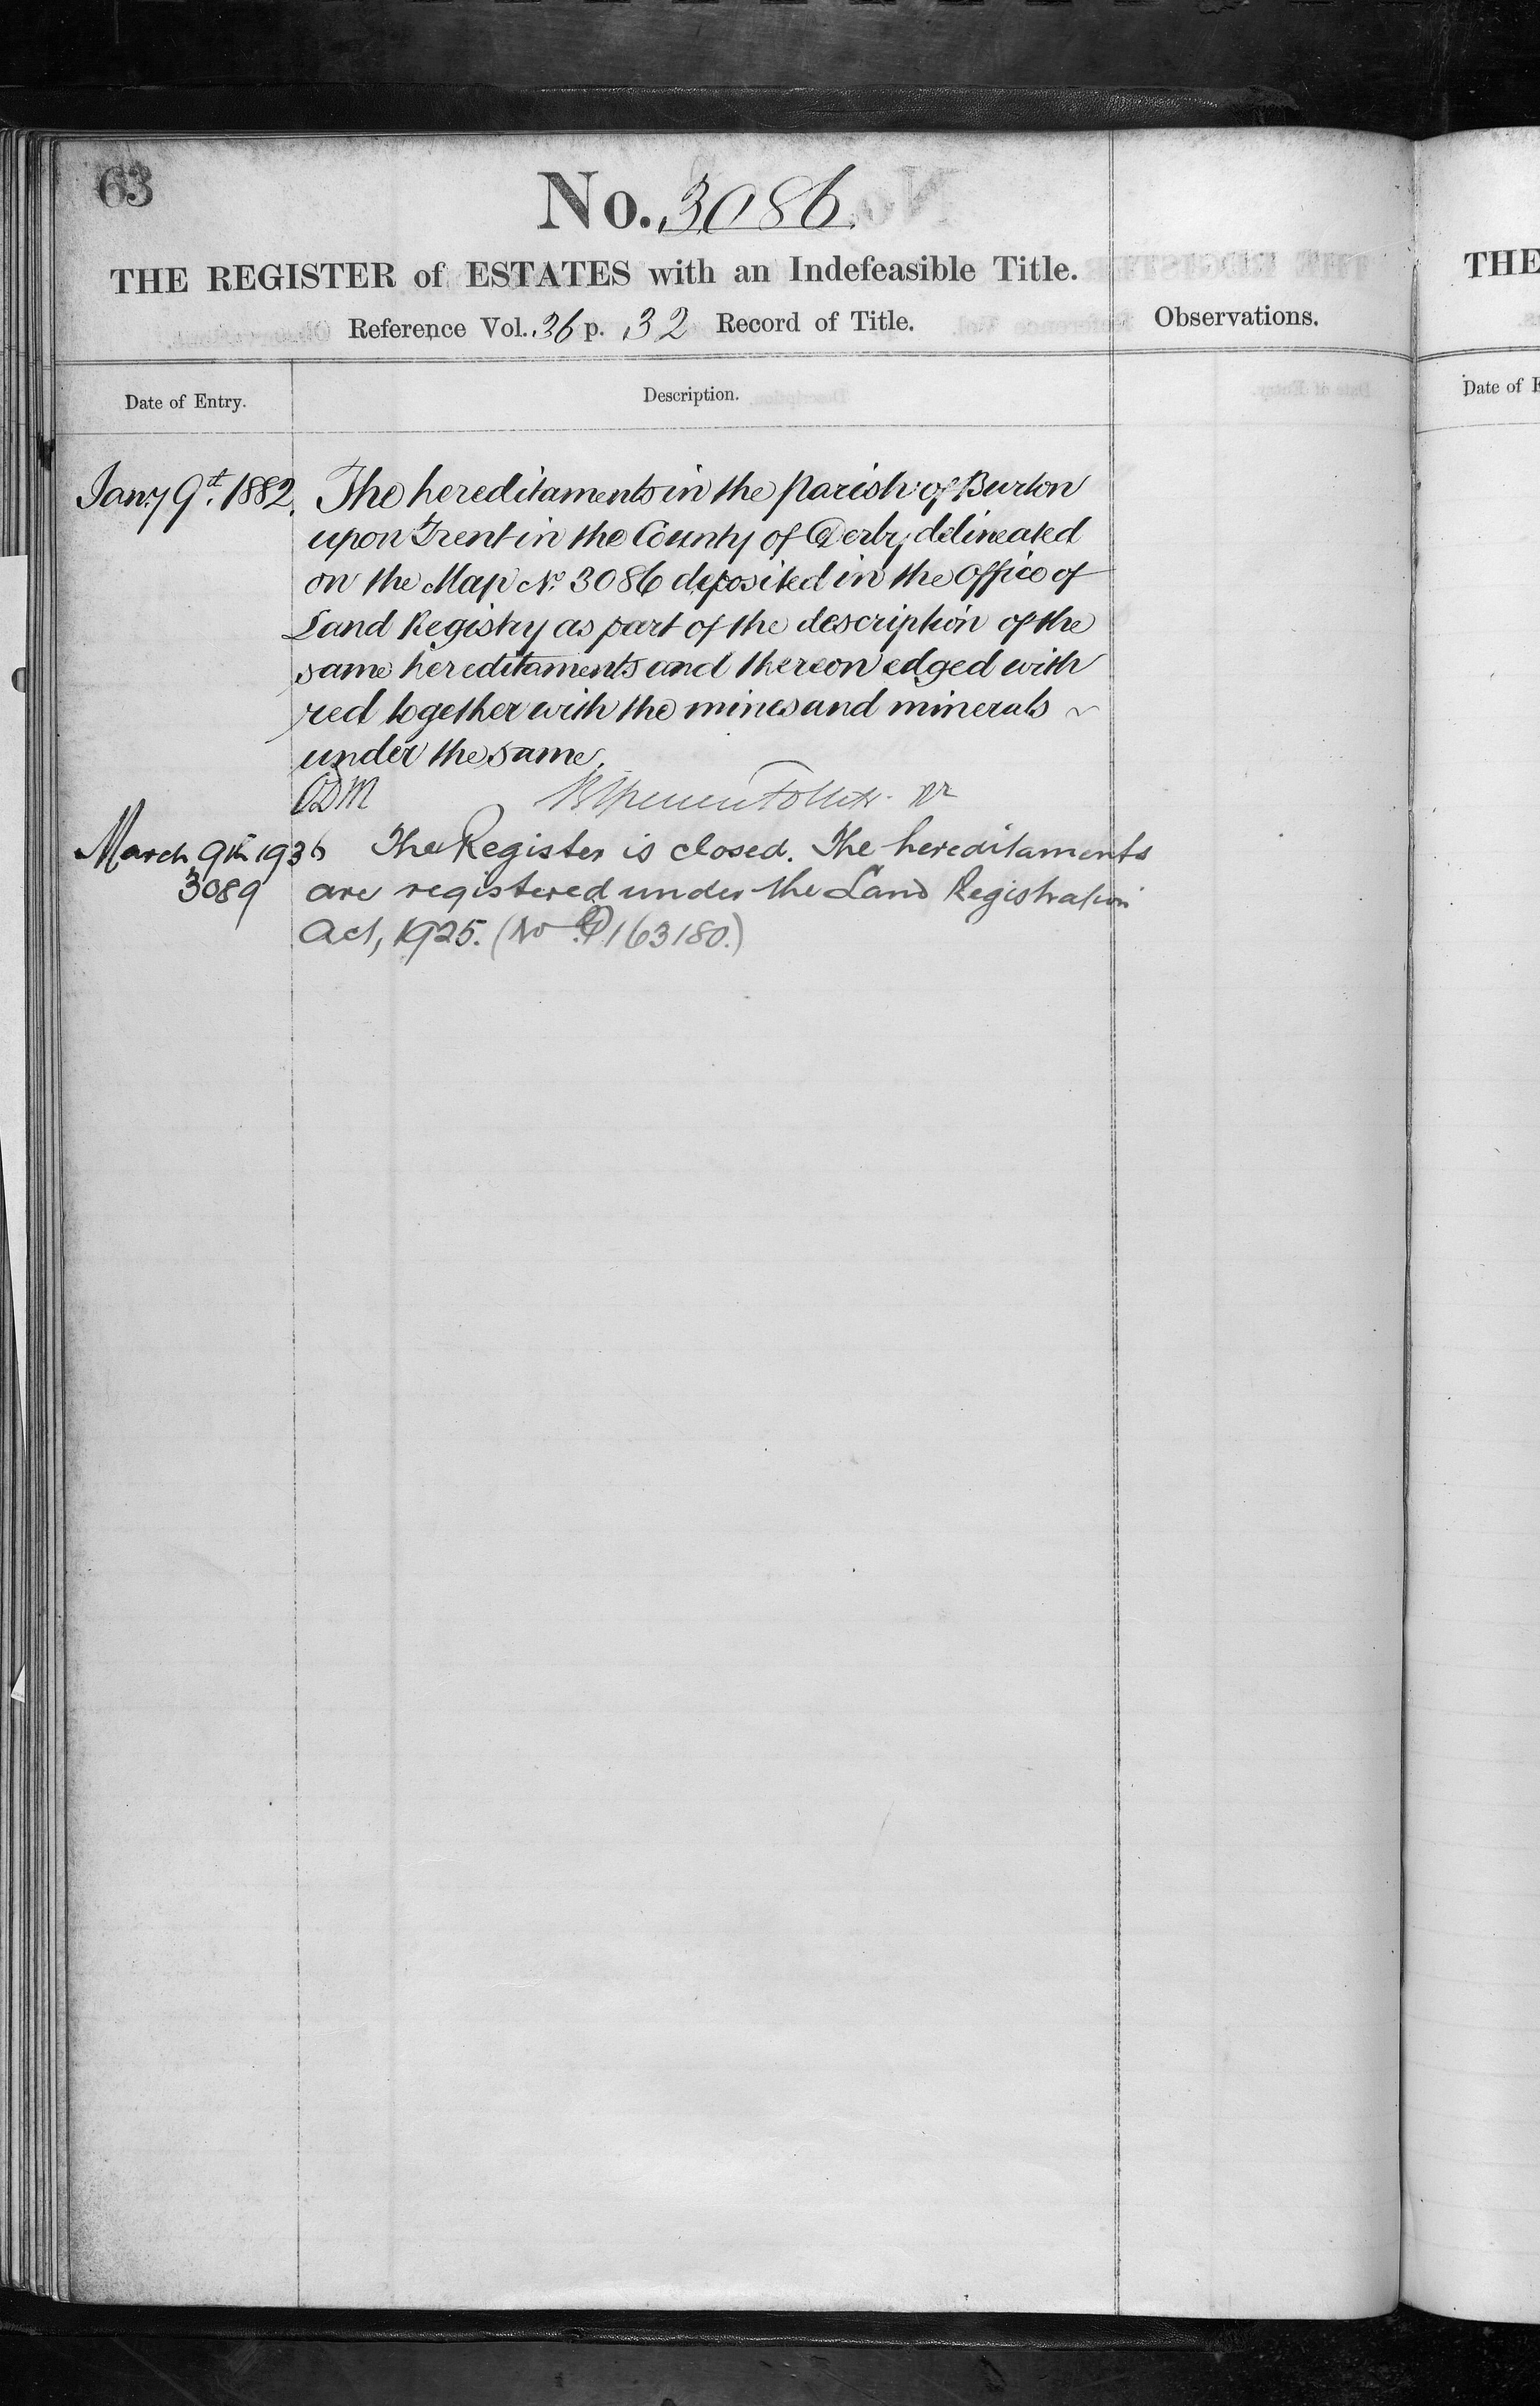 63
No. 3086
THE REGISTER of ESTATES with an Indefeasible Title.
Reference Vol. 36 p. 32 Record of Title.
Observations.
Date of Entry.
Description.
Jany 9th. 1882. The hereditaments in the parish of Burton
upon Trent in the County of Derby delineated
on the Map No. 3086 deposited in the Office of
Land Registry as part of the description of the
same hereditaments and thereon edged with
red together with the mines and minerals ~
under the same.
March 9th 1936 The Register is closed. The hereditaments
3089 are registered under the Land Registration
Act, 1925. (No 163180.)
THE
Date of E